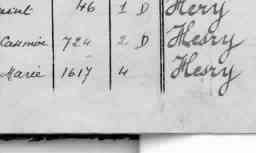 46 1 D Hery
Casimir 724 2 D Hesry
Marie 1617 4 Hesry